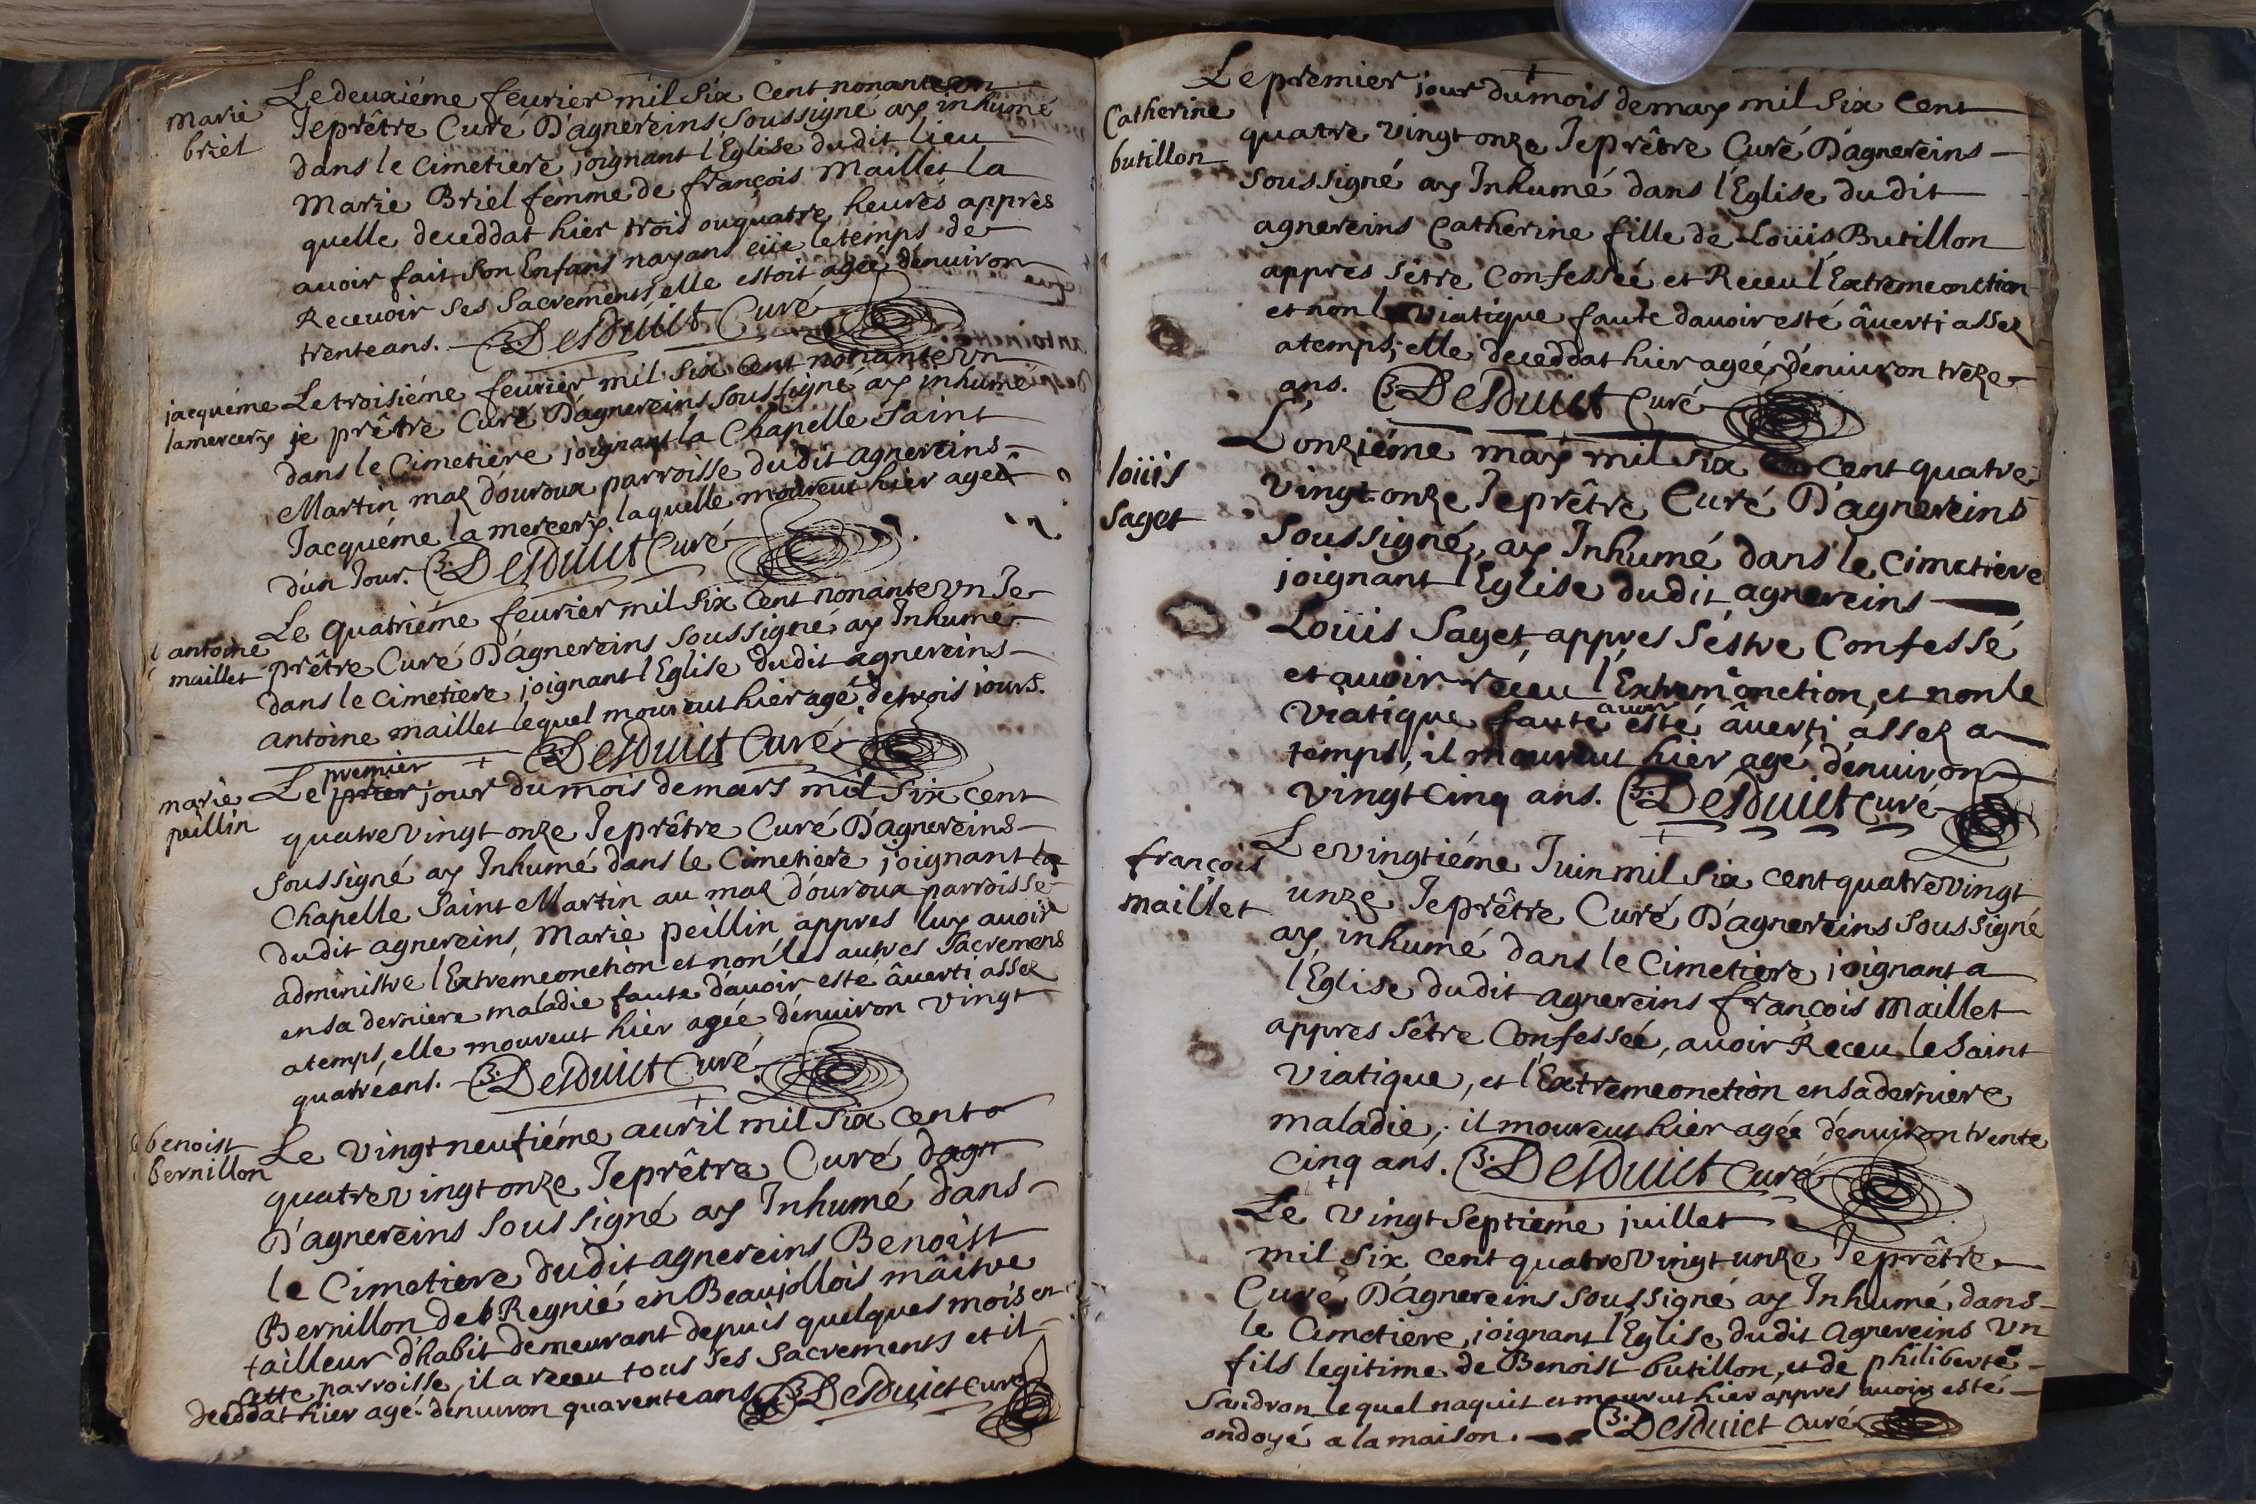 marie
briel
Le deuxiéme feurier mil six cent nonante un
Je prêtre Curé D'agnereins soussigné ay inhumé
dans le cimetiere joignant l'Eglise dudit lieu
Marie Briel femme de françois Maillet la
quelle deceddat hier trois ou quatre heures appres
auoir fait son Enfant nayant eüe le temps de
Receuoir ses sacrements elle estoit agée d'enuiron
trente ans. B. Desduict Curé
jacquéme
lamercery
Le troisiéme feurier mil six cent nonante un
je prêtre Curé D'agnereins soussigné ay inhumé
dans le cimetiere joignant la Chapelle saint
Martin maz douroux parroisse dudit agnereins
Jacquéme la mercery laquelle moureut hier ageé
d'un Jour. B. Desduict Curé
antoine
maillet
Le quatriéme feurier mil six cent nonante un Je
prêtre Curé D'agnereins soussigné ay Inhumé
dans le cimetiere joignant l'Eglise dudit agnereins
antoine maillet lequel moureut hier agé de trois jours.
B. Desduict Curé
marie
peillin
premier
Le jour du mois de mars mil six cent
quatre vingt onze Je prêtre Curé D'agnereins
soussigné ay Inhumé dans le Cimetiere joignant la
Chapelle saint Martin au maz d'ouroux parroisse
dudit agnereins, Marie peillin appres luy auoir
administre l'Extremeonction et non les autres sacremens
en sa derniere maladie faute d'auoir esté âuerti assez
a temps, elle moureut hier agée d'enuiron vingt
quatre ans. B. Desduict Curé
benoist
bernillon
Le vingt neufiéme auril mil six cent
quatre vingt onze Je prêtre Curé dagn
D'agnereins soussigné ay Inhumé dans
le Cimetiere dudit agnereins Benoist
Bernillon de Regnié en Beaujollois mâitre
tailleur d'habit demeurant depuis quelques mois en
cette parroisse, il a receu tous ses sacrements et il
deceddat hier agé d'enuiron quarente ans B. Desduict Curé
Catherine
butillon
Le premier jour du mois de may mil six cent
quatre vingt onze Je prêtre Curé D'agnereins
soussigné ay Inhumé dans l'Eglise dudit
agnereins Catherine fille de Loüis Butillon
appres s'être Confesseé et Receu l'Extremeonction
et non le viatique faute dauoir esté âuerti assez
a temps; elle deceddat hier ageé d'enuiron treze
ans. B. Desduict Curé
loüis
saget
L'onziéme may mil six cent quatre
vingt onze Je prêtre Curé D'agnereins
soussigné, ay Inhumé dans le Cimetiere
joignant l'Eglise dudit agnereins
Loüis Saget, appres s'éstre Confessé
et auoir receu l'Extremonction, et non le
auoir
viatique faute esté âuerti assez a
temps, il moureut hier agé d'enuiron
vingt cinq ans. B. Desduict Curé
françois
maillet
Le vingtiéme Juin mil six cent quatre vingt
unze Je prêtre Curé D'agnereins soussigné
ay inhumé dans le Cimetiere joignant a
l'Eglise dudit agnereins françois Maillet
appres s'être Confesseé, auoir Receu le saint
Viatique, et l'Extremeonction en sa derniere
maladie, il moureut hier agée d'enuiron trente
cinq ans. B. Desduict Curé
Le vingt septieme juillet
mil six cent quatre vingt unze Je prêtre
Curé D'agnereins soussigné ay Inhumé dans
le Cimetiere, joignant l'Eglise dudit Agnereins un
fils legitime de Benoist butillon, et de philiberte
Sandron lequel naquit et mourut hier appres auoir esté
ondoyé a la maison. B. Desduict Curé